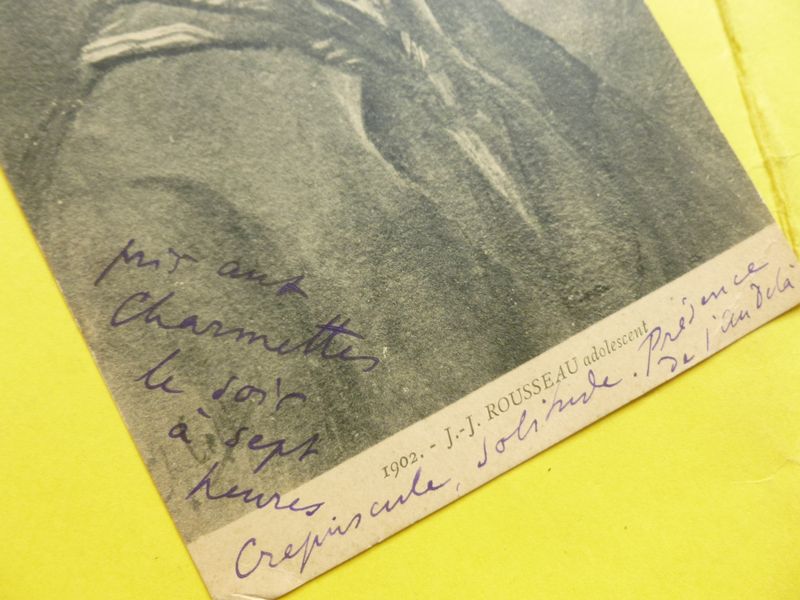 pris aux
Charmettes
le soir
à sept
heures
1902. - J.-J. ROUSSEAU adolescent
Crepuscule, solitude. Présence
de l'au Delà